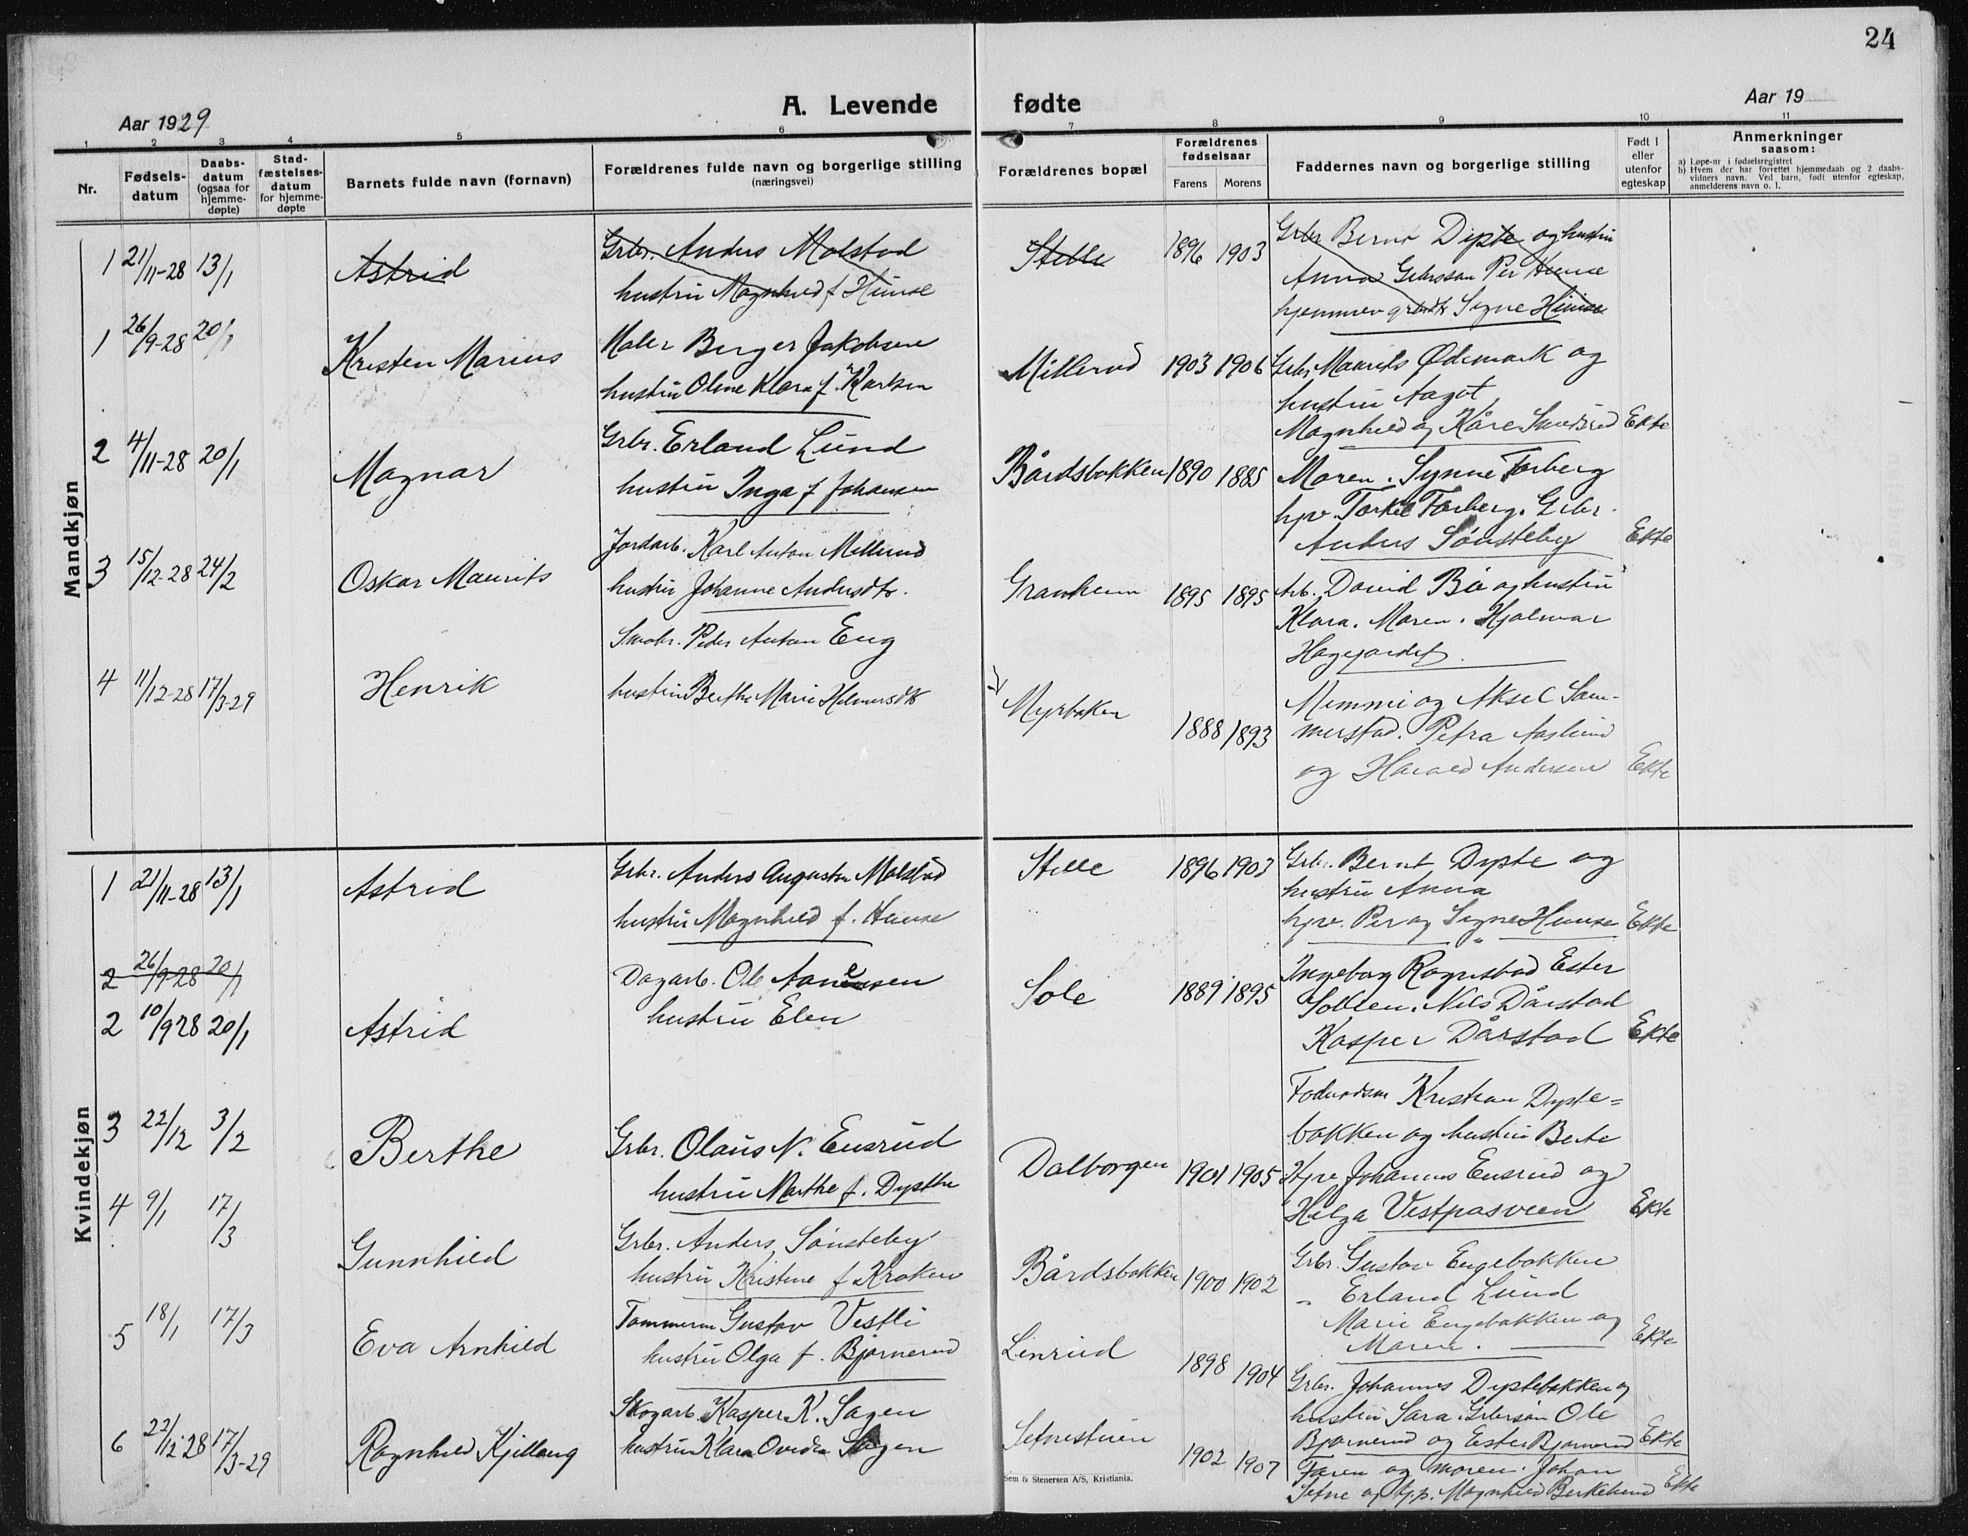 24
A. Levende fødte
Aar 1929
Aar 19
1 2 3 4 5 6 7 8 9 10 11
Nr.
Fødsels-
datum
Daabs-
datum
(ogsaa for
hjemme-
døpte)
Stad-
fæstelses-
datum
for hjemme-
døpte
Barnets fulde navn (fornavn)
Forældrenes fulde navn og borgerlige stilling
(næringsvei)
Forældrenes bopæl
Forældrenes
fødselsaar
Farens Morens
Faddernes navn og borgerlige stilling
Født i
eller
utenfor
egteskap
Anmerkninger
saasom:
a) Løpe-nr i fødselsregistret
b) Hvem der har forrettet hjemmedaab og 2 daabs-
vidners navn. Ved barn, født utenfor egteskap,
anmelderens navn o. l.
Mandkjøn
1 21/11-28 13/1 Astrid
Grbr. Anders Molstad
hustru Magnhild f Hunse
Stelle 1896 1903
Grbr Bernt Dyste og hustru
Anna Gbrssøn Per Hunse
hjemmev grbrdtr Signe Hunse
1 26/9-28 20/1 Kristen Marius
Maler Berger Jakobsen
hustru Oline Klara f. Karlsen
Millerud 1903 1906
Grbr Maurits Ødemark og
hustru Aagot
Magnhild og Kåre Ekte
2 4/11-28 20/1 Magnar
Grbr. Erland Lund
hustru Inga f Johansen
Bårdsbakken 1890 1885
Moren. Synne Forberg
hpv. Torkel Forberg. Grbr.
Anders Sönsteby Ekte
3 15/12-28 24/2 Oskar Maurits
Jordarb. Karl Anton Millerud
hustru Johanne Andersdtr.
Granheim 1895 1895
Arb. David Bö og hustru
Klara. Moren. Hjalmar
Hagejordet
4 11/12-28 17/3-29 Henrik
Smbr. Peder Anton Eng
hustru Berthe Marie Helmersdtr
Myrbakken 1888 1893
Mimmi og Aksel Sam-
merstad. Petra Aaslund
og Harald Andersen Ekte
Kvindekjøn
1 21/11-28 13/1 Astrid
Grbr. Anders Augustin Molstad
hustru Magnhild f. Hunse
Stelle 1896 1903
Grb. Bernt Dyste og
hustru Anna
hpv. Per og Signe Hunse Ekte
2 26/9-28 20/1
2 10/9 28 20/1 Astrid
Dagarb. Ole Aanesen
hustru Elen
Sole 1889 1895
Ingeborg Rognstad Ester
Sollien. Nils Dårstad
Kasper Dårstad Ekte
3 22/12 3/2 Berthe
Grbr. Olaus N. Ensrud
hustru Marthe f. Dysthe
Dalborgen 1901 1905
Fodermdsm Kristian Dyste=
bakken og hustru Berte
Hpv Johannes Ensrud og
Helga Vestpasveen Ekte
4 9/1 17/3 Gunnhild
Grbr. Anders Sönsteby
hustru Kristine f Kraken
Bårdsbakken 1900 1902
Grbr. Gustav Engebakken
" Erland Lund
Marie Engebakken og
Moren. Ekte
5 18/1 17/3 Eva Arnhild
Tømmerm Gustav Vestli
hustru Olga f. Bjørnerud
Linrud 1898 1904
Grbr. Johannes Dystebakken og
hustru Sara. Grbrsøn Ole
Bjørnerud og Ester Bjørnerud Ekte
6 22/12-28 17/3-29 Ragnhild Kjellaug
Skogarb. Kasper K. Sagen
hustru Klara Ovidia Sagen
Setnestuen 1902 1907
Faren og moren. Johan
Setne og hp. Magnhild Berkelund Ekte
Sem & Stenersen A/S, Kristiania.